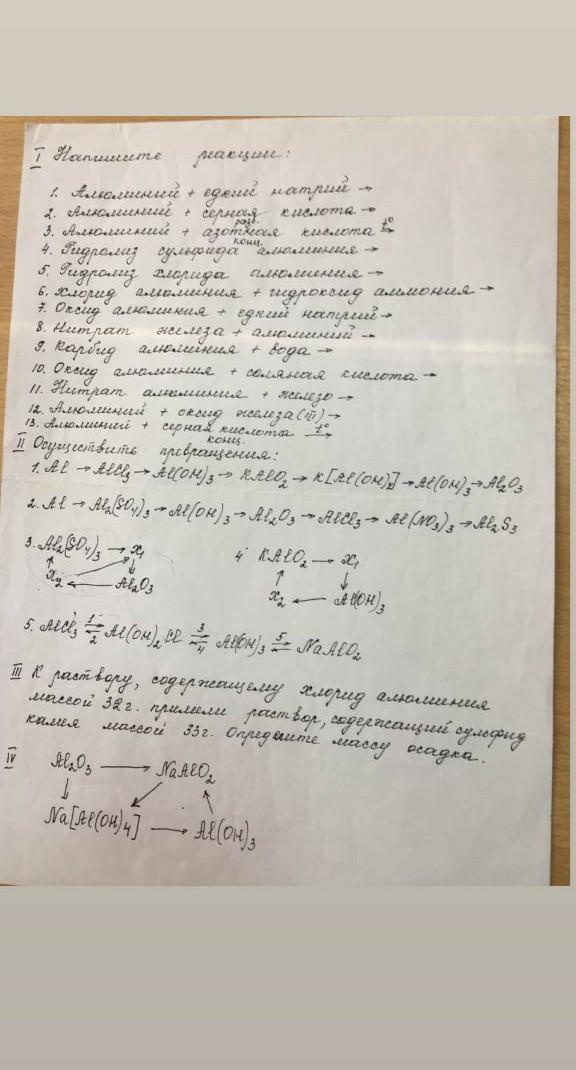 I Напишите реакции:
1. Алюминий + едкий натрий →
2. Алюминий + серная кислота →
разб.
3. Алюминий + азотная кислота t° →
конц.
4. Гидролиз сульфида алюминия →
5. Гидролиз хлорида алюминия →
6. Хлорид алюминия + гидроксид аммония →
7. Оксид алюминия + едкий натрий →
8. Нитрат железа + алюминий →
9. Карбид алюминия + вода →
10. Оксид алюминия + соляная кислота →
11. Нитрат алюминия + железо →
12. Алюминий + оксид железа (III) →
13. Алюминий + серная кислота t° →
конц.
II Осуществить превращения:
1. Al → AlCl₃ → Al(OH)₃ → KAlO₂ → K[Al(OH)₄] → Al(OH)₃ → Al₂O₃
2. Al → Al₂(SO₄)₃ → Al(OH)₃ → Al₂O₃ → AlCl₃ → Al(NO₃)₃ → Al₂S₃
3. Al₂(SO₄)₃ → X₁
X₂ ← Al₂O₃
4. KAlO₂ → X₁
X₂ ← Al(OH)₃
5. AlCl₃ 1 ⇄ 2 Al(OH)₂Cl 3 ⇄ 4 Al(OH)₃ 5 ⇄ NaAlO₂
III К раствору, содержащему хлорид алюминия
массой 32г. прилили раствор, содержащий сульфид
калия массой 33г. Определите массу осадка.
IV Al₂O₃ → NaAlO₂
Na[Al(OH)₄] → Al(OH)₃